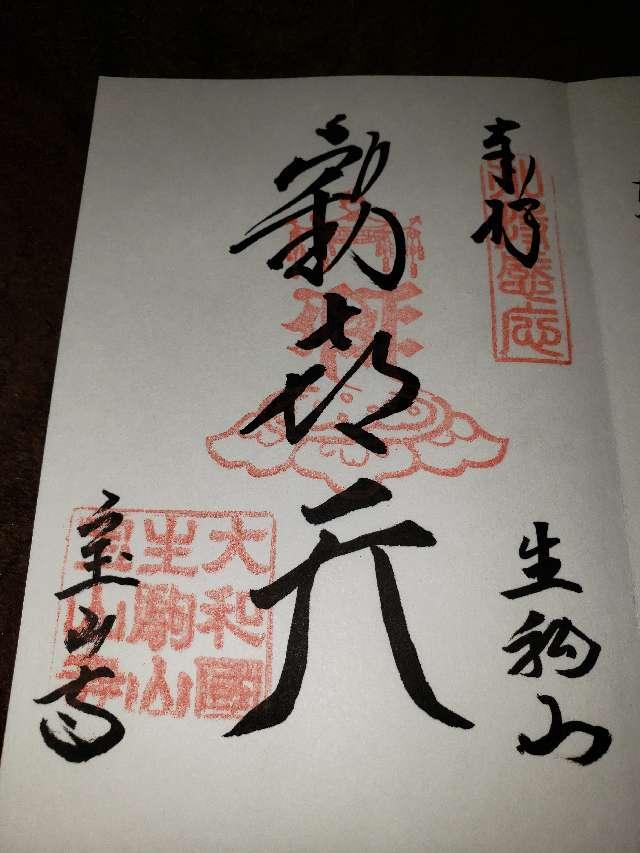 奉拝
生駒山
歓喜天
宝山寺
大和國
生駒山
寳山寺